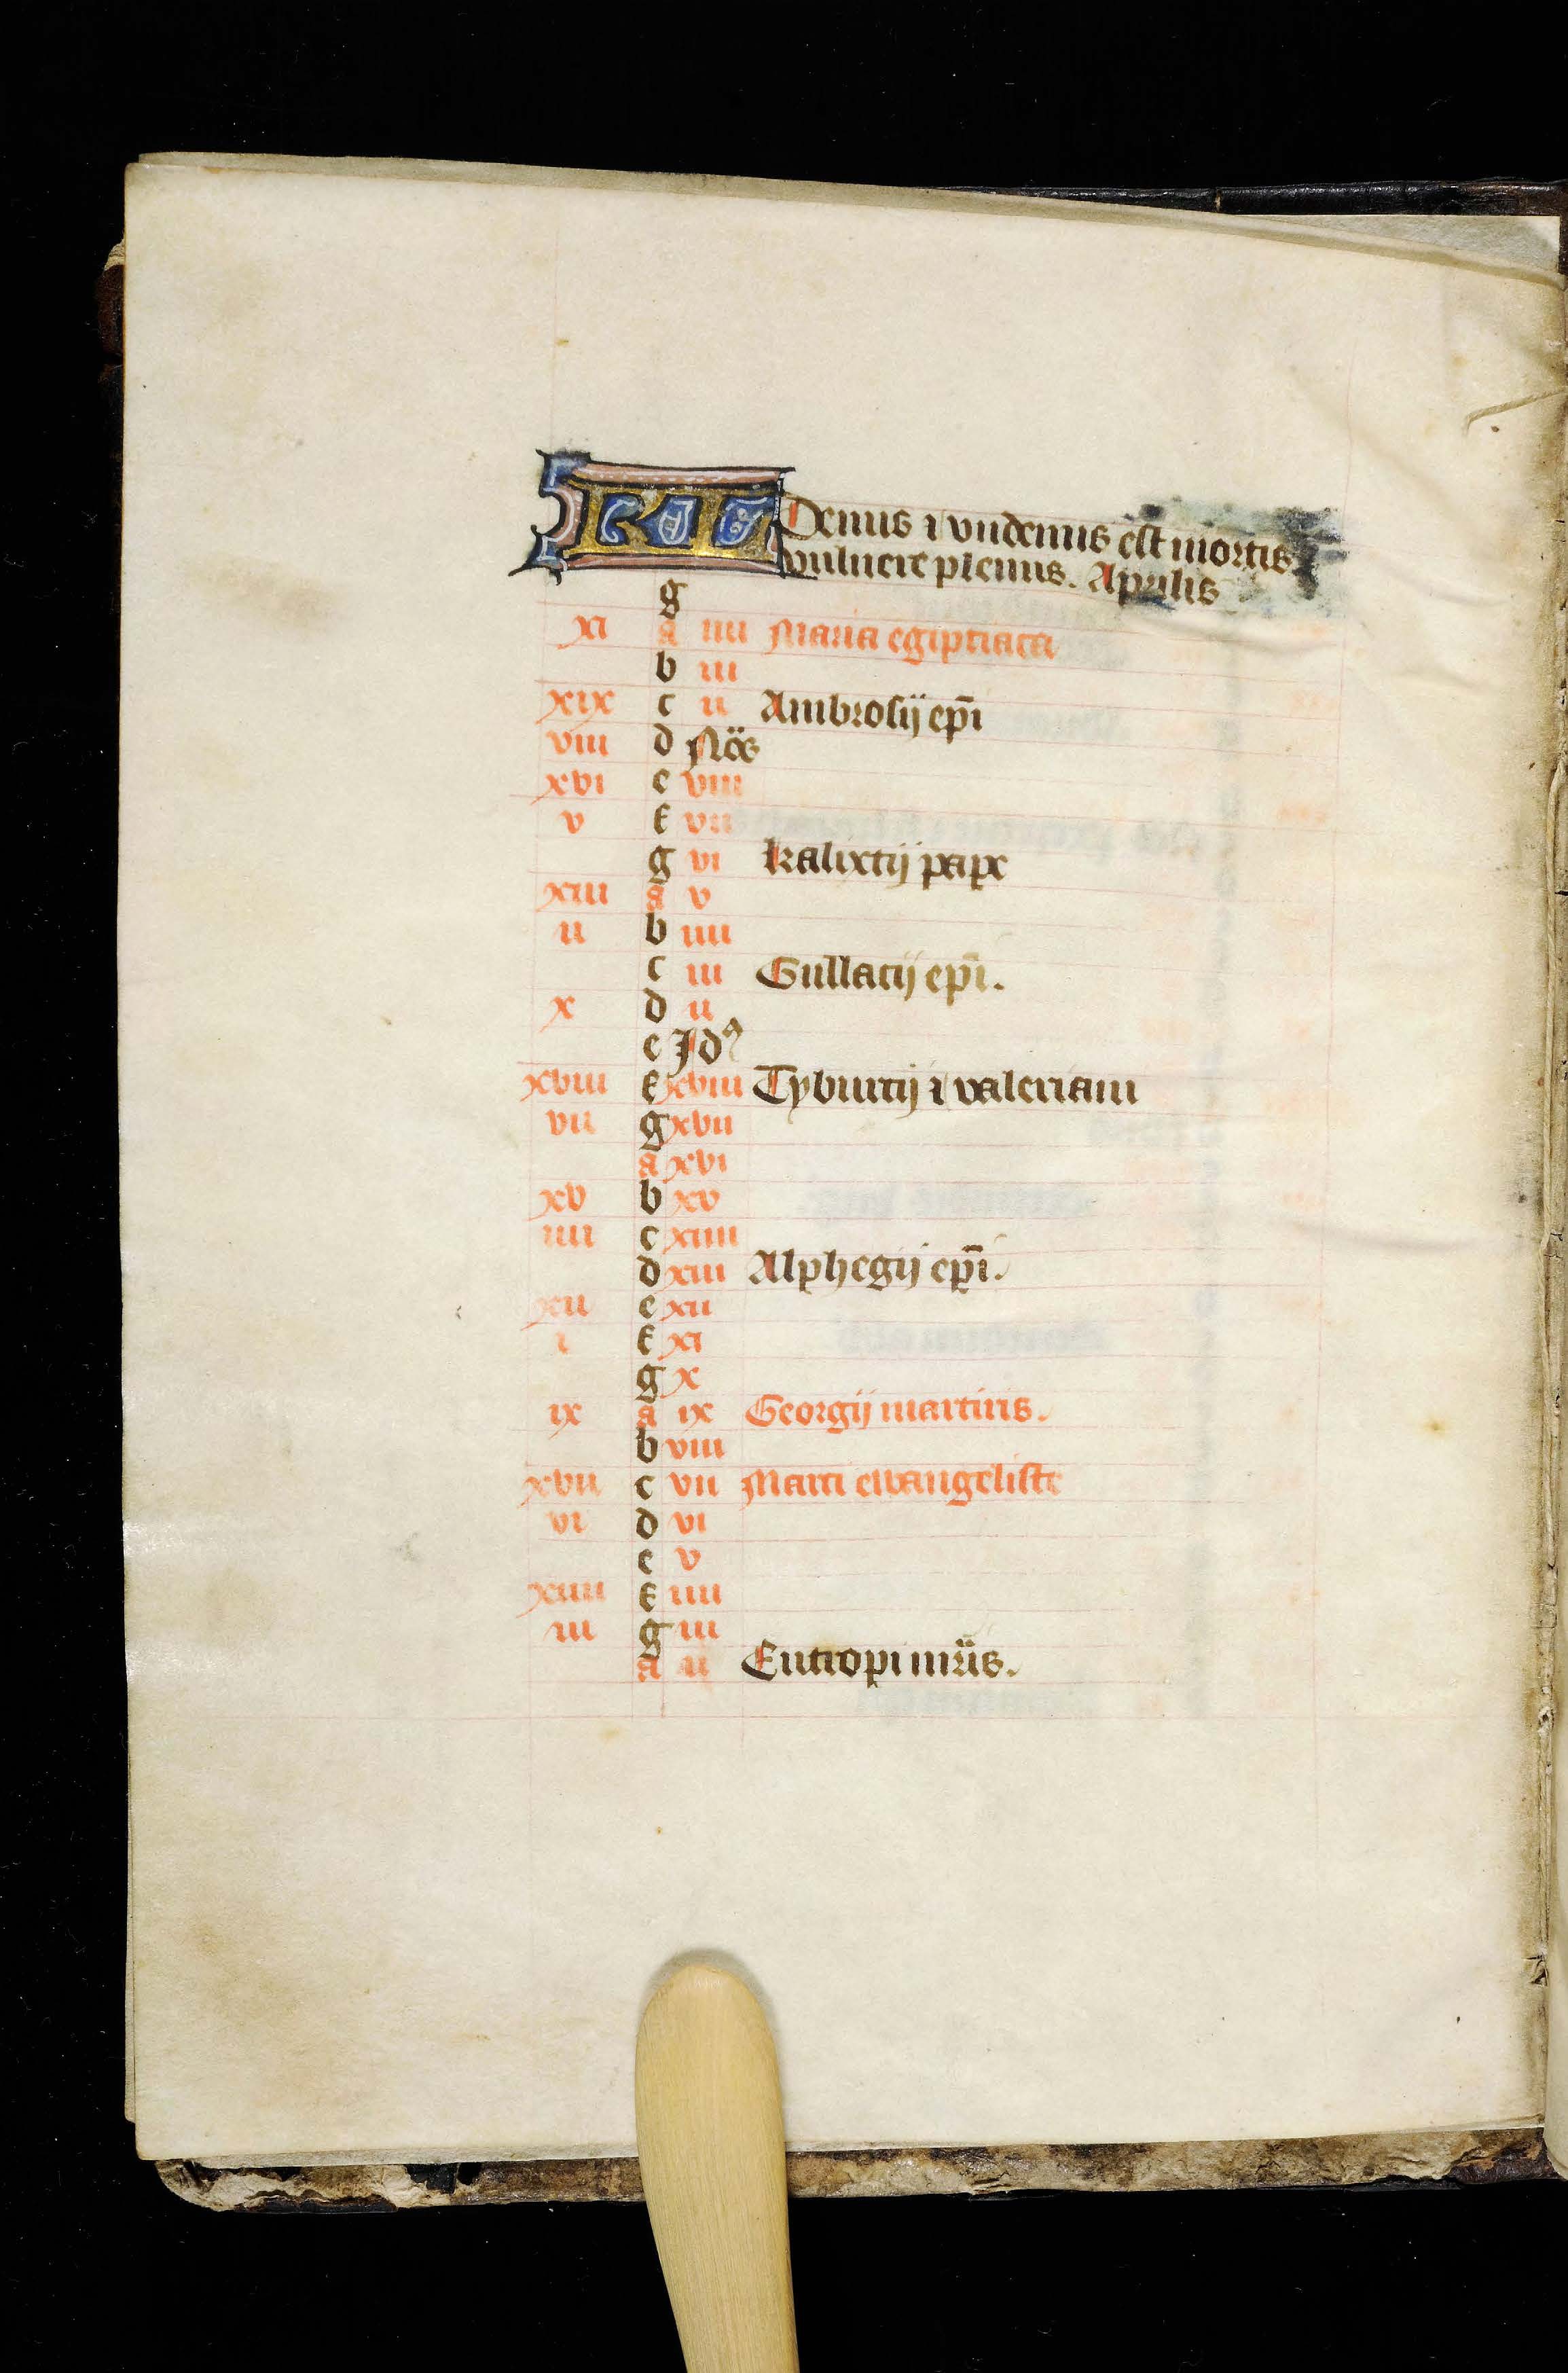 KL Denus ⁊ vndenus est mortis
vulnere plenus. Aprilis
g
xi a iiii Maria egiptiaca
b iii
xix c ii Ambrosij ep̄i
viii d No̅s
xvi e viii
v f vii
g vi Kalixtij pape
xiii a v
ii b iiii
c iii Gullacij ep̄i.
x d ii
e Idꝰ
xviii f xviii Tyburtij ⁊ valeriani
vii g xvii
a xvi
xv b xv
iiii c xiiii
d xiii Alphegij ep̄i.
xii e xii
i f xi
g x
ix a ix Georgij martiris.
b viii
xvii c vii Marci ewangeliste
vi d vi
e v
xiiii f iiii
iii g iii
a ii Eutropi mr̄is.